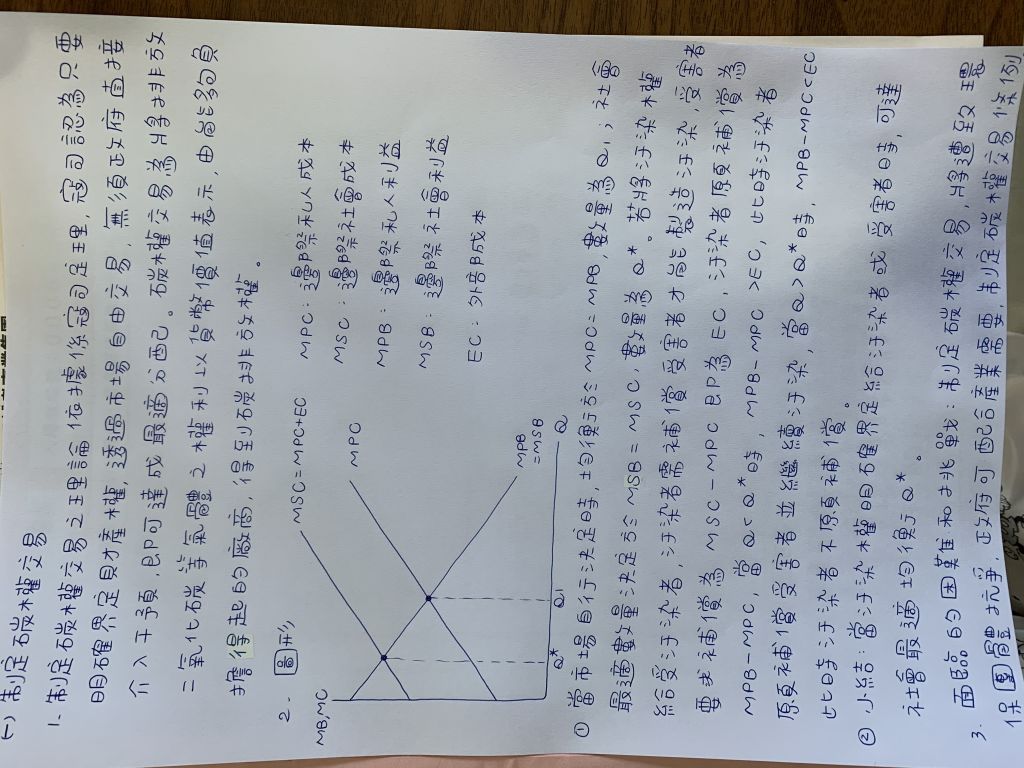 (一) 制定碳權交易
1. 制定碳權交易之理論依據係寇司定理,寇司認為只要
明確界定財產權,透過市場自由交易,無須政府直接
介入干預,即可達成最適分配。碳權交易為將排放
二氧化碳等氣體之權利以貨幣價值表示,由能夠負
擔得起的廠商,得到碳排放權。
2. 圖形
MB,MC
MSC=MPC+EC
MPC
MPB
=MSB
Q
Q*
Q1
MPC:邊際私人成本
MSC:邊際社會成本
MPB:邊際私人利益
MSB:邊際社會利益
EC:外部成本
① 當市場自行決定時,均衡於MPC=MPB,數量為Q1;社會
最適數量決定於MSB=MSC,數量為Q*。若將汙染權
給受汙染者,汙染者需補償受害者才能製造汙染,受害者
要求補償為 MSC-MPC 即為EC,汙染者願補償為
MPB-MPC,當Q<Q*時,MPB-MPC>EC,此時汙染者
願補償受害者並繼續汙染,當Q>Q*時,MPB-MPC<EC
此時汙染者不願補償。
② 小結:當汙染權明確界定給汙染者或受害者時,可達
社會最適均衡Q*。
3. 面臨的困難和挑戰:制定碳權交易,將遭致環
保團體抗爭,政府可配合產業需要,制定碳權交易條例